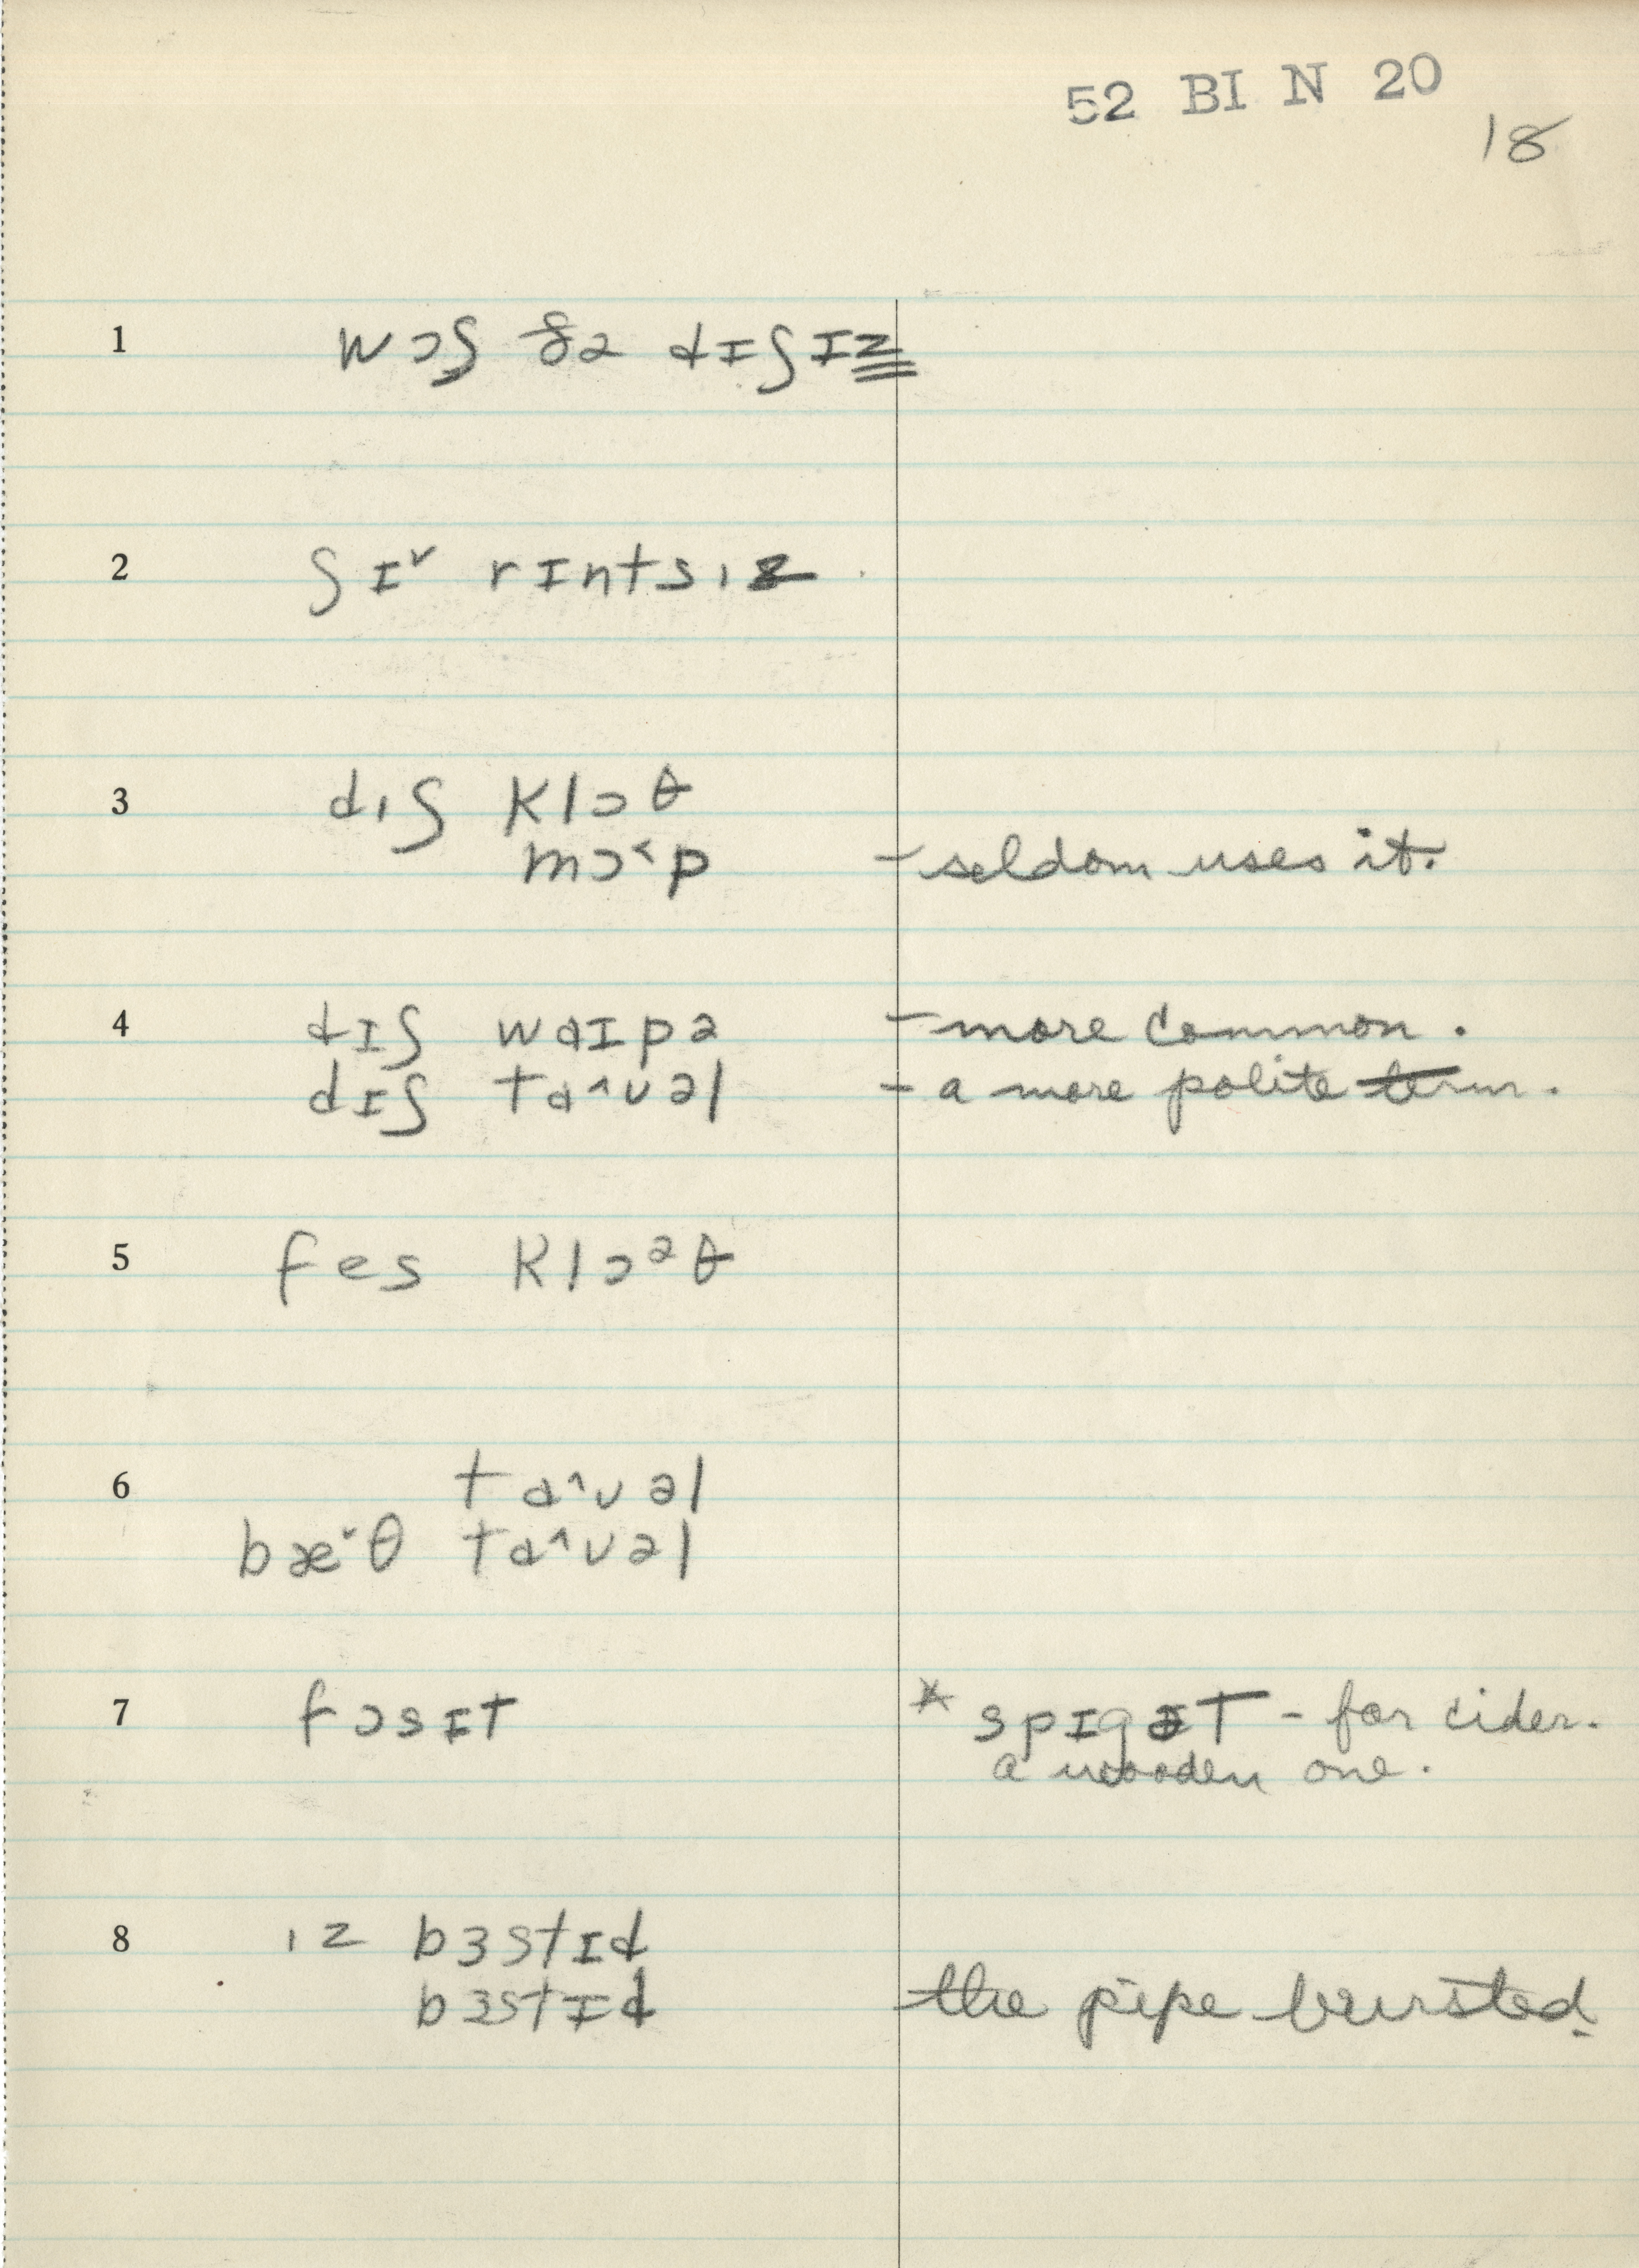 52 BI N 20
18
1 wɔʃ ðə dɪʃɪz
2 ʃɪ˅ rɪntsɪz
3 dɪʃ klɔθ
mɔ˂p - seldom uses it.
4 dɪʃ waɪpə - more common.
dɪʃ tɑ˄ʊəl - a more polite term.
5 fes klɔᵊθ
6 tɑ˄ʊəl
bæ˅θ tɑ˄ʊəl
7 fɔsɪt * spɪgɪt - for cider.
a wooden one.
8 ɪz bɜstɪd
bɜstɪd the pipe bursted.